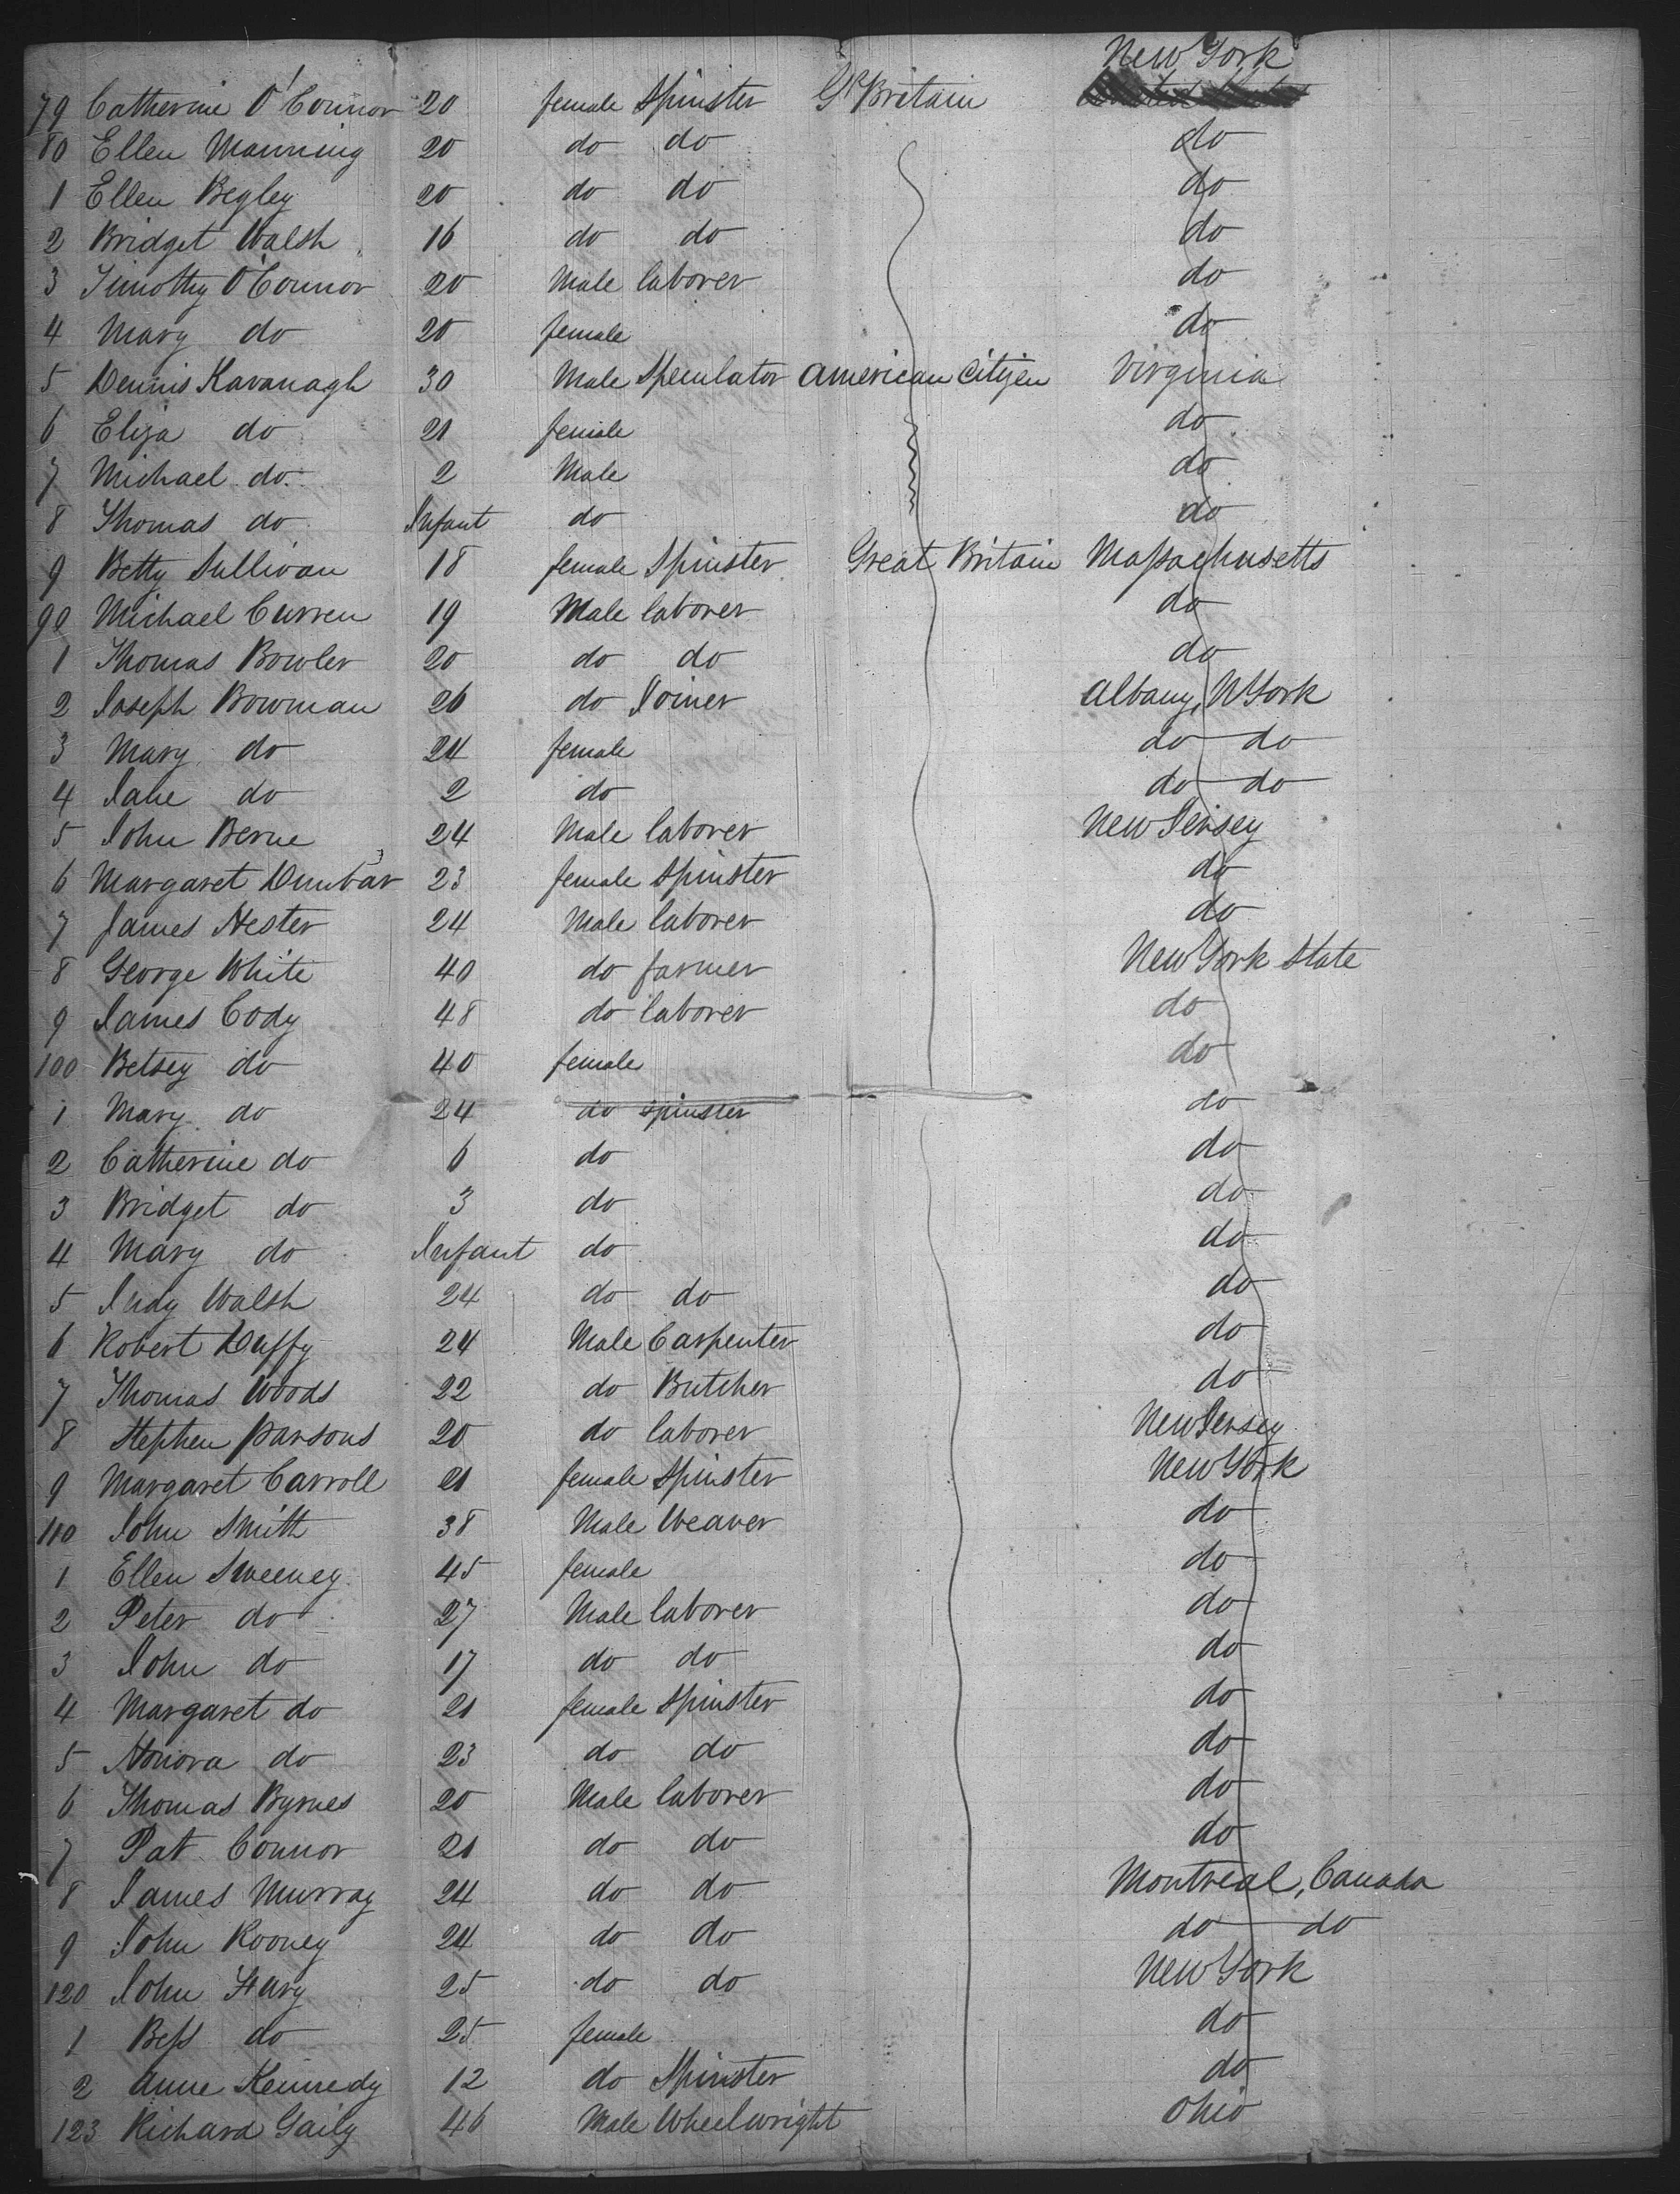 New York
79 Catherine O'Connor 20 female Spinster Gt Britain
80 Ellen Manning 20 do do do
1 Ellen Begley 20 do do do
2 Bridget Walsh 16 do do do
3 Timothy O'Connor 20 Male laborer do
4 Mary do 20 female do
5 Dennis Kavanagh 30 Male Speculator American Citizen Virginia
6 Eliza do 21 female do
7 Michael do 2 Male do
8 Thomas do Infant do do
9 Betty Sullivan 18 female Spinster Great Britain Massachusetts
90 Michael Curren 19 Male laborer do
1 Thomas Bowler 20 do do do
2 Joseph Bowman 26 do Joiner Albany, N York
3 Mary do 24 female do do
4 Jane do 2 do do do
5 John Berne 24 Male laborer New Jersey
6 Margaret Dunbar 23 female Spinster do
7 James Hester 24 Male laborer do
8 George White 40 do farmer New York State
9 James Cody 48 do laborer do
100 Betsey do 40 female do
1 Mary do 24 do spinster do
2 Catherine do 6 do do
3 Bridget do 3 do do
4 Mary do Infant do do
5 Judy Walsh 24 do do do
6 Robert Duffy 24 Male Carpenter do
7 Thomas Woods 22 do Butcher do
8 Stephen Parsons 20 do laborer New Jersey
9 Margaret Carroll 21 female Spinster New York
110 John Smith 38 Male Weaver do
1 Ellen Sweeney 45 female do
2 Peter do 27 Male laborer do
3 John do 17 do do do
4 Margaret do 21 female Spinster do
5 Honora do 23 do do do
6 Thomas Byrnes 20 Male laborer do
7 Pat Connor 21 do do do
8 James Murray 24 do do Montreal, Canada
9 John Rooney 24 do do do do
120 John 25 do do New York
1 Bess do 25 female do
2 Anne Kennedy 12 do Spinster do
123 Richard Gaily 46 Male Wheelwright Ohio